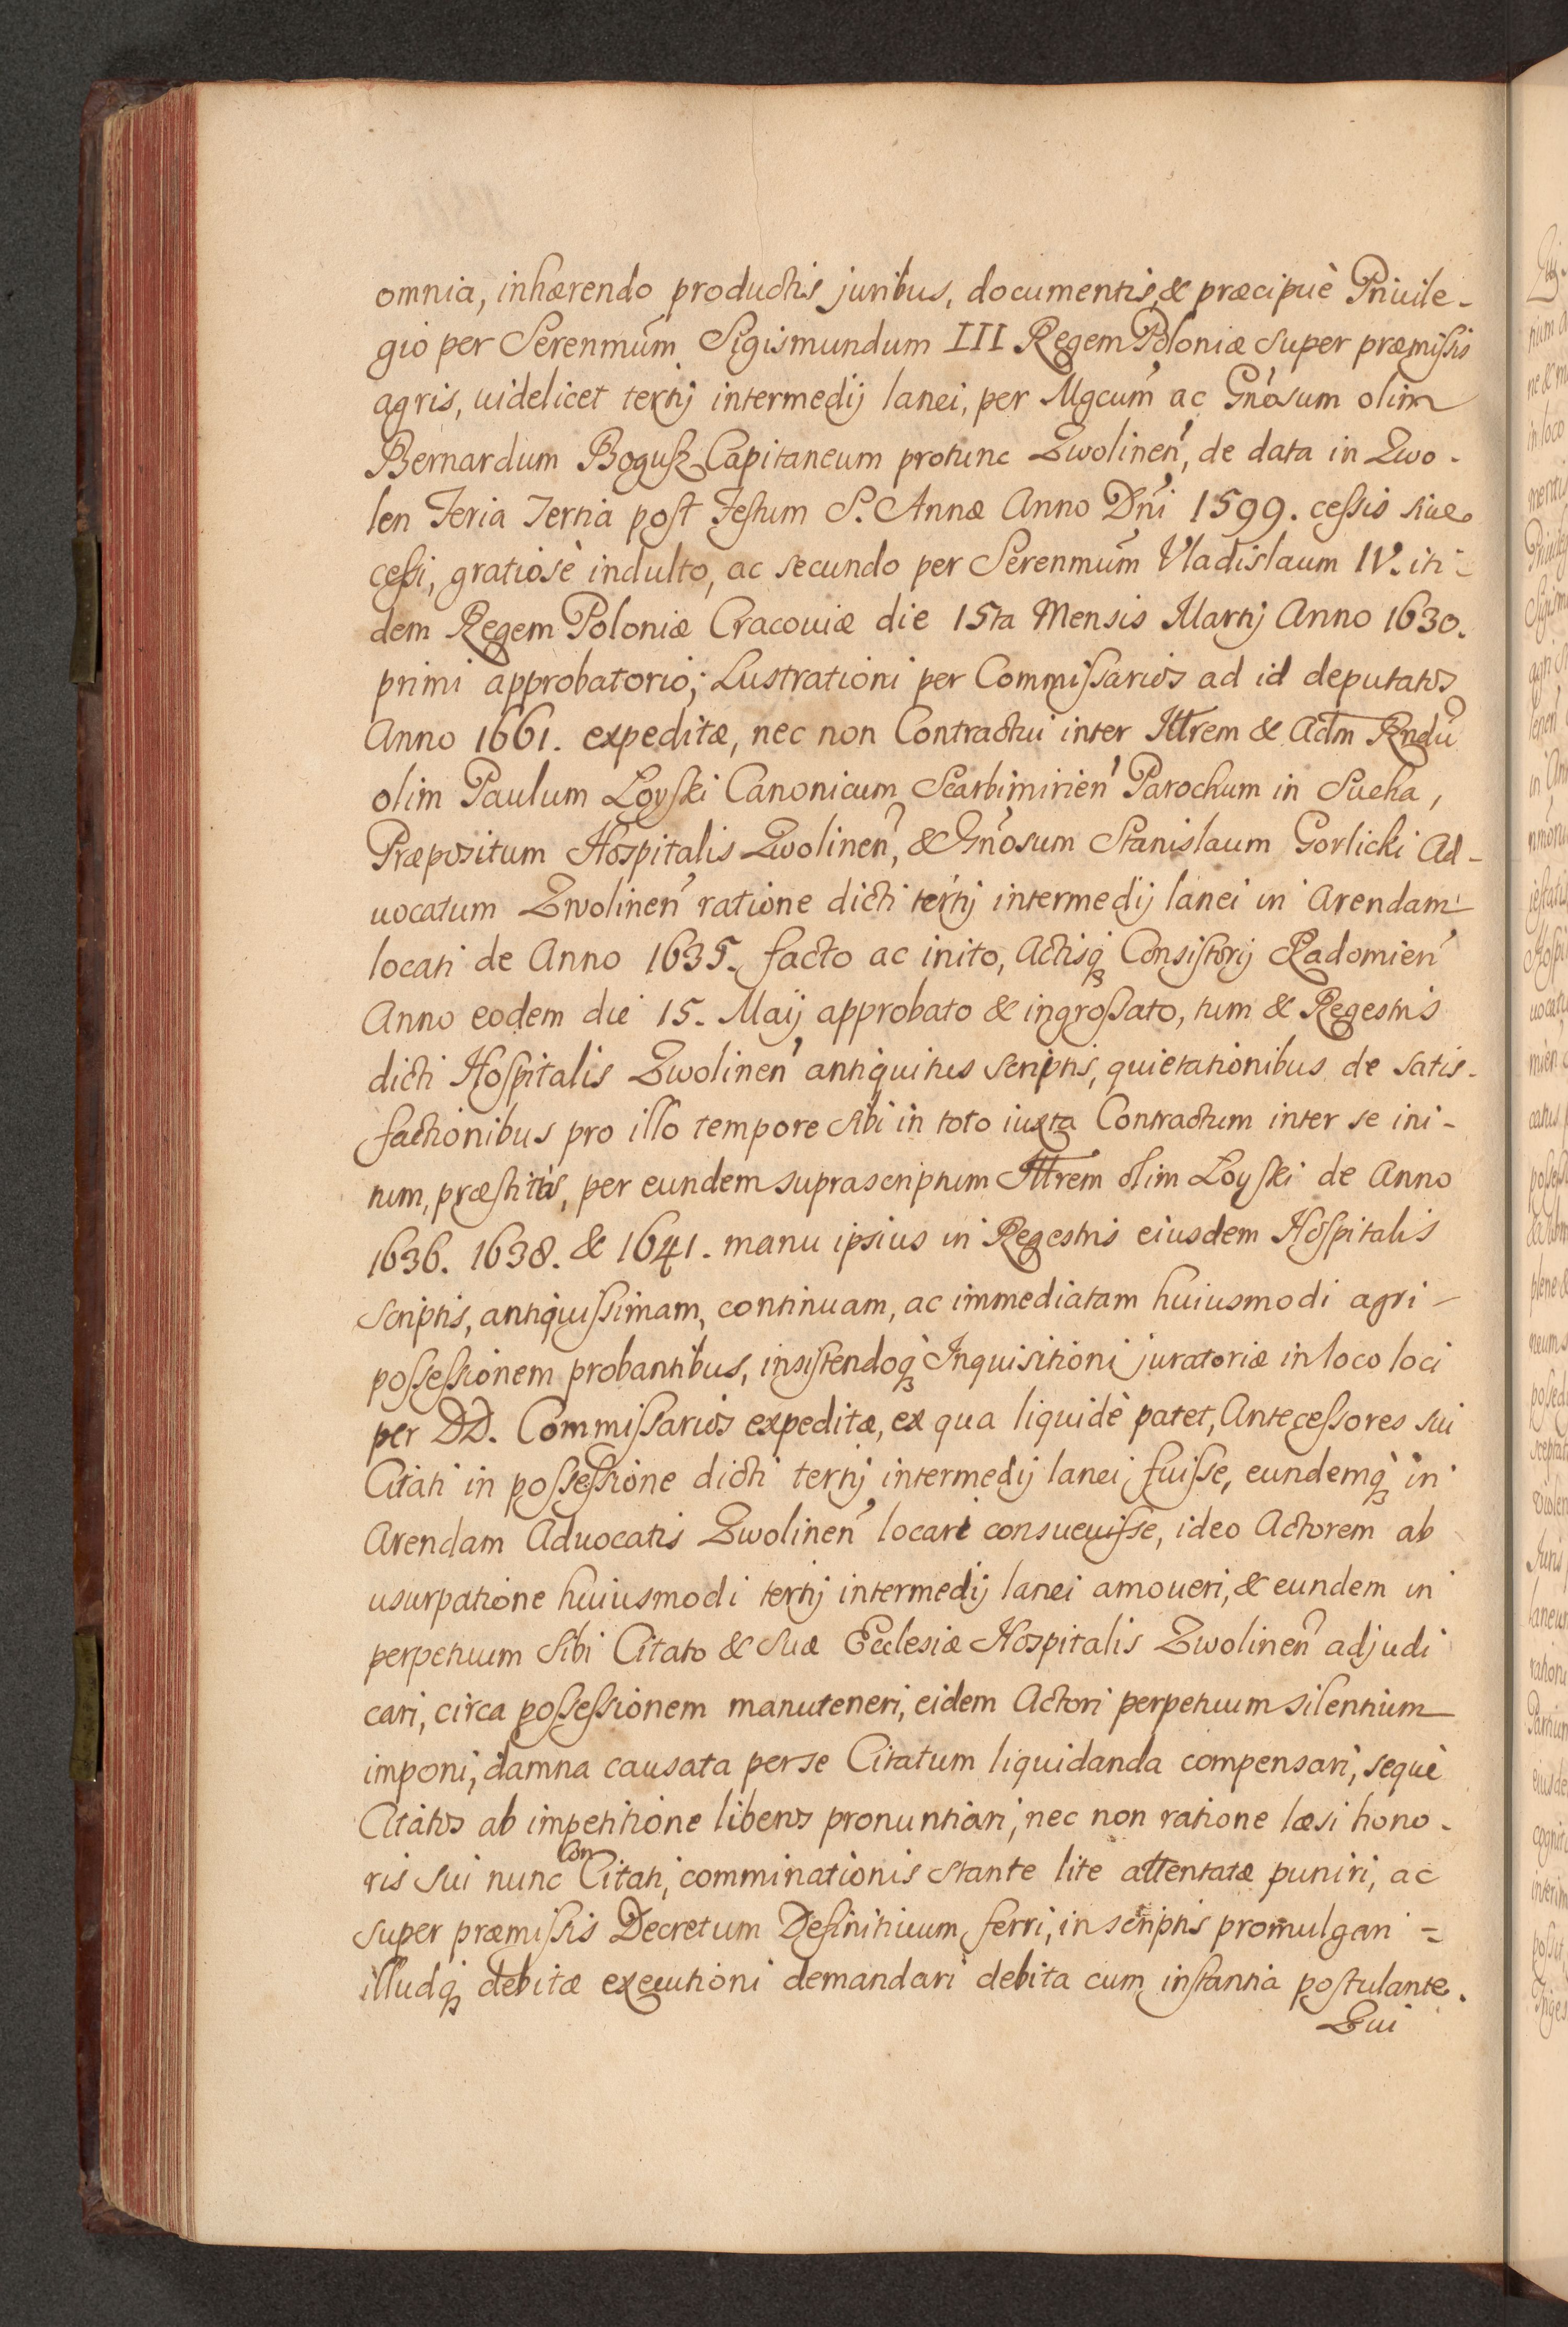 omnia, inhærendo productis juribus, documentis, & præcipuè Priuile-
gio per Serenmũm Sigismundum III Regem Poloniæ super præmissis
agris, uidelicet tertij intermedij lanei, per Mgcum̃ ac Gnõsum olim
Bernardum Bogusz Capitaneum protunc Zwolinen̉, de data in Zwo-
len Feria Tertia post Festum S. Annæ Anno Dñi 1599. cessis siue
cessi, gratiosè indulto, ac secundo per Serenmũm Vladislaum IV. iti-
dem Regem Poloniæ Cracouiæ die 15ta Mensis Martij Anno 1630.
primi approbatorio; Lustrationi per Commissarios ad id deputatos
Anno 1661. expeditæ, nec non Contractui inter Illtrem & Adm Rndũ
olim Paulum Loyski Canonicum Scarbimirien̉ Parochum in Sucha,
Præpositum Hospitalis Zwolinen̉, & Gnõsum Stanislaum Gorlicki Ad-
uocatum Zwolinen̉ ratione dicti tertij intermedij lanei in Arendam
locati de Anno 1635. facto ac inito, Actisqꝫ Consistorij Radomien̉
Anno eodem die 15. Maij approbato & ingrossato, tum & Regestris
dicti Hospitalis Zwolinen̉ antiquitus scriptis, quietationibus de satis-
factionibus pro illo tempore sibi in toto iuxta Contractum inter se ini-
tum, præstitis, per eundem suprascriptum Illtrem olim Loyski de Anno
1636. 1638. & 1641. manu ipsius in Regestris eiusdem Hospitalis
scriptis, antiquissimam, continuam, ac immediatam huiusmodi agri
possessionem probantibus, insistendoqꝫ Inquisitioni juratoriæ in loco loci
per DD. Commissarios expeditæ, ex qua liquidè patet, Antecessores sui
Citati in possessione dicti tertij intermedij lanei fuisse, eundemqꝫ in
Arendam Aduocatis Zwolinen̉ locari consueuisse, ideo Actorem ab
usurpatione huiusmodi tertij intermedij lanei amoueri, & eundem in
perpetuum sibi Citato & suæ Ecclesiæ Hospitalis Zwolinen̉ adjudi
cari, circa possessionem manuteneri, eidem Actori perpetuum silentium
imponi, damna causata per se Citatum liquidanda compensari, sequè
Citatos ab impetitione liberos pronuntiari, nec non ratione læsi hono-
ris sui nunc ConCitati, comminationis stante lite attentatæ puniri, ac
super præmissis Decretum Definitiuum ferri, in scriptis promulgari =
illudqꝫ debitæ executioni demandari debita cum instantia postulante.
Qui